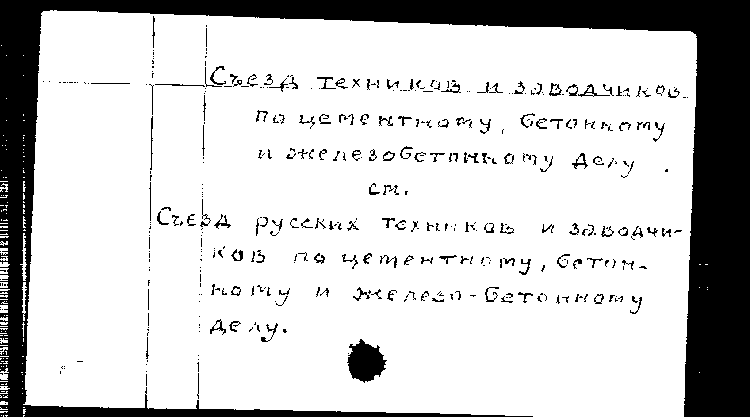 Съезд техников и заводчиков
по цементному, бетонному
и железобетонному делу.
см.
Съезд русских техников и заводчи-
ков по цементному, бетон-
ному и железо-бетонному
делу.